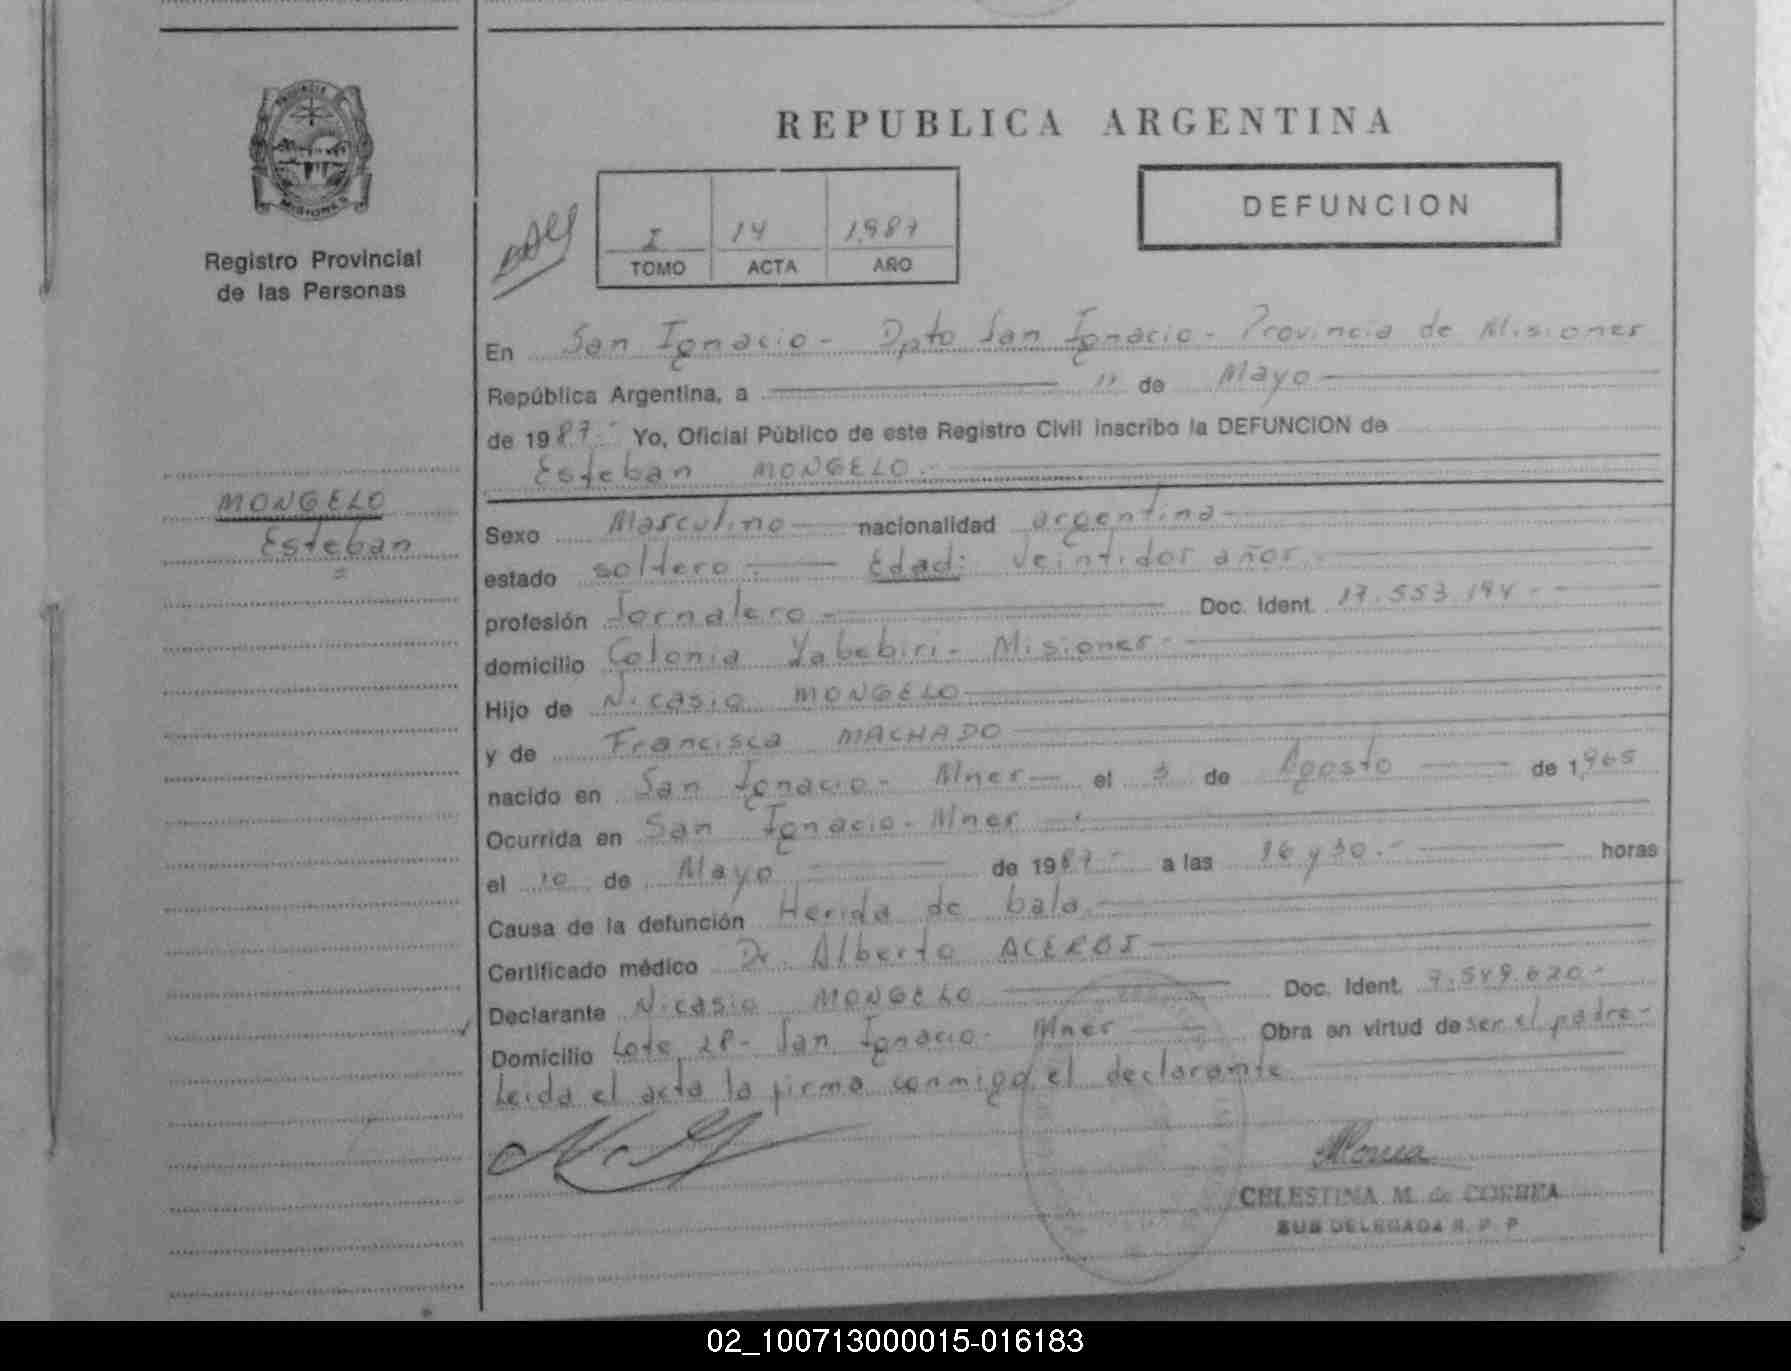 PROVINCIA
MISIONES
Registro Provincial
de las Personas
MONGELO
Esteban
REPUBLICA ARGENTINA
I 14 1987
TOMO ACTA AÑO
DEFUNCION
En San Ignacio - Dpto San Ignacio - Provincia de Misiones
República Argentina, a 11 de Mayo
de 1987.- Yo, Oficial Público de este Registro Civil inscribo la DEFUNCION de
Esteban MONGELO.-
Sexo Masculino nacionalidad argentina
estado soltero.- Edad: veintidos años.
profesión Jornalero - Doc. Ident. 17.553.194 -
domicilio Colonia Yabebiri - Misiones -
Hijo de Nicasio MONGELO
y de Francisca MACHADO
nacido en San Ignacio - Mnes - el 3 de Agosto de 1,965
Ocurrida en San Ignacio - Mnes
el 10 de Mayo de 1987 - a las 16 y 30.- horas
Causa de la defunción Herida de bala.
Certificado médico Dr. Alberto ACEROS
Declarante Nicasio MONGELO Doc. Ident. 7.549.620 -
Domicilio Lote 28 - San Ignacio - Mnes Obra en virtud de ser el padre -
Leida el acta la firma conmigo el declarante
CELESTINA M. de CORREA
SUB DELEGADA R. P. P.
02_100713000015-016183